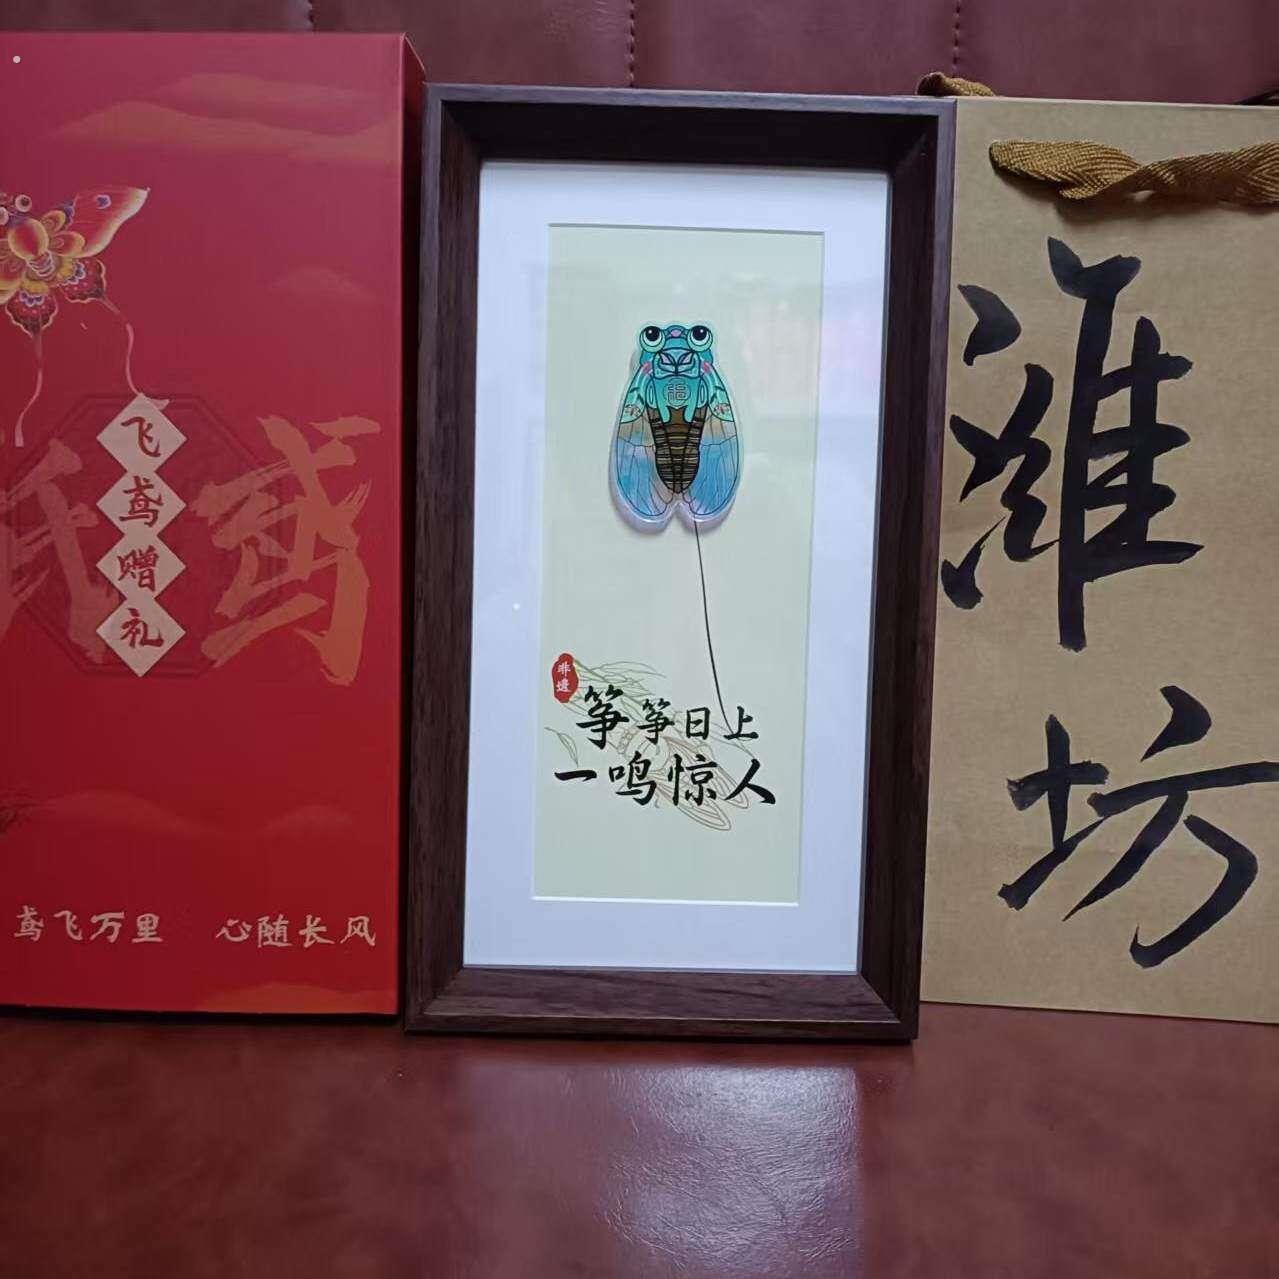 纸鸢
飞鸢赠礼
鸢飞万里 心随长风
福
非遗
筝筝日上
一鸣惊人
潍坊